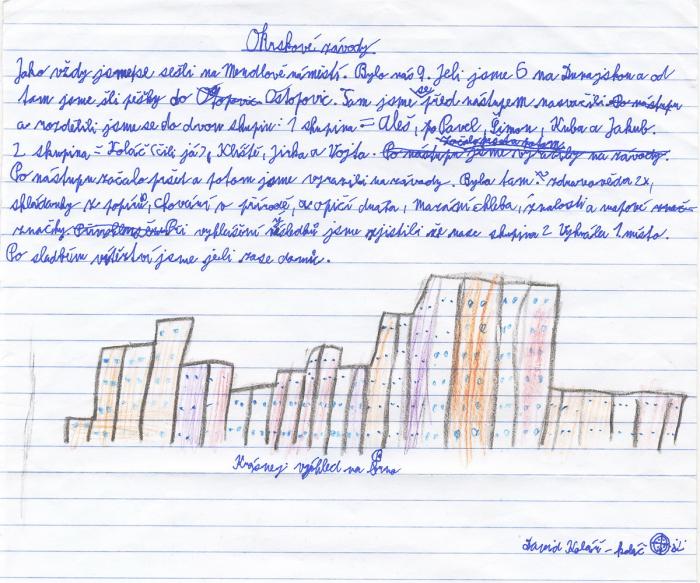 Okrskové závody
Jako vždy jsme se sešli na Mendlově náměstí. Bylo nás 9. Jeli jsme 6 na Dunajskou a od
tam jsme šli pěšky do Ostopovic. Tam jsme se před nástupem nasvačili
a rozdělili jsme se do dvou skupin: 1 skupina = Aleš, Pavel, Šimon, Kuba a Jakub.
2 skupina = Koláč (čili já), Klíště, Jirka a Vojta. Po nástupu jsme vyrazily na závody.
Po nástupu začalo pršet a potom jsme vyrazili na závody. Byla tam: zdravověda 2x,
skládanky z papíru, Chování v přírodě, opičí dráha, mazání chleba, znalosti a mapové
značky Při vyhlášení výsledků jsme zjistili že naše skupina 2 Vyhrála 1. místo.
Po sladkém vítězství jsme jeli zase domů.
Krásnej výhled na Brno
David Kolář - koláč